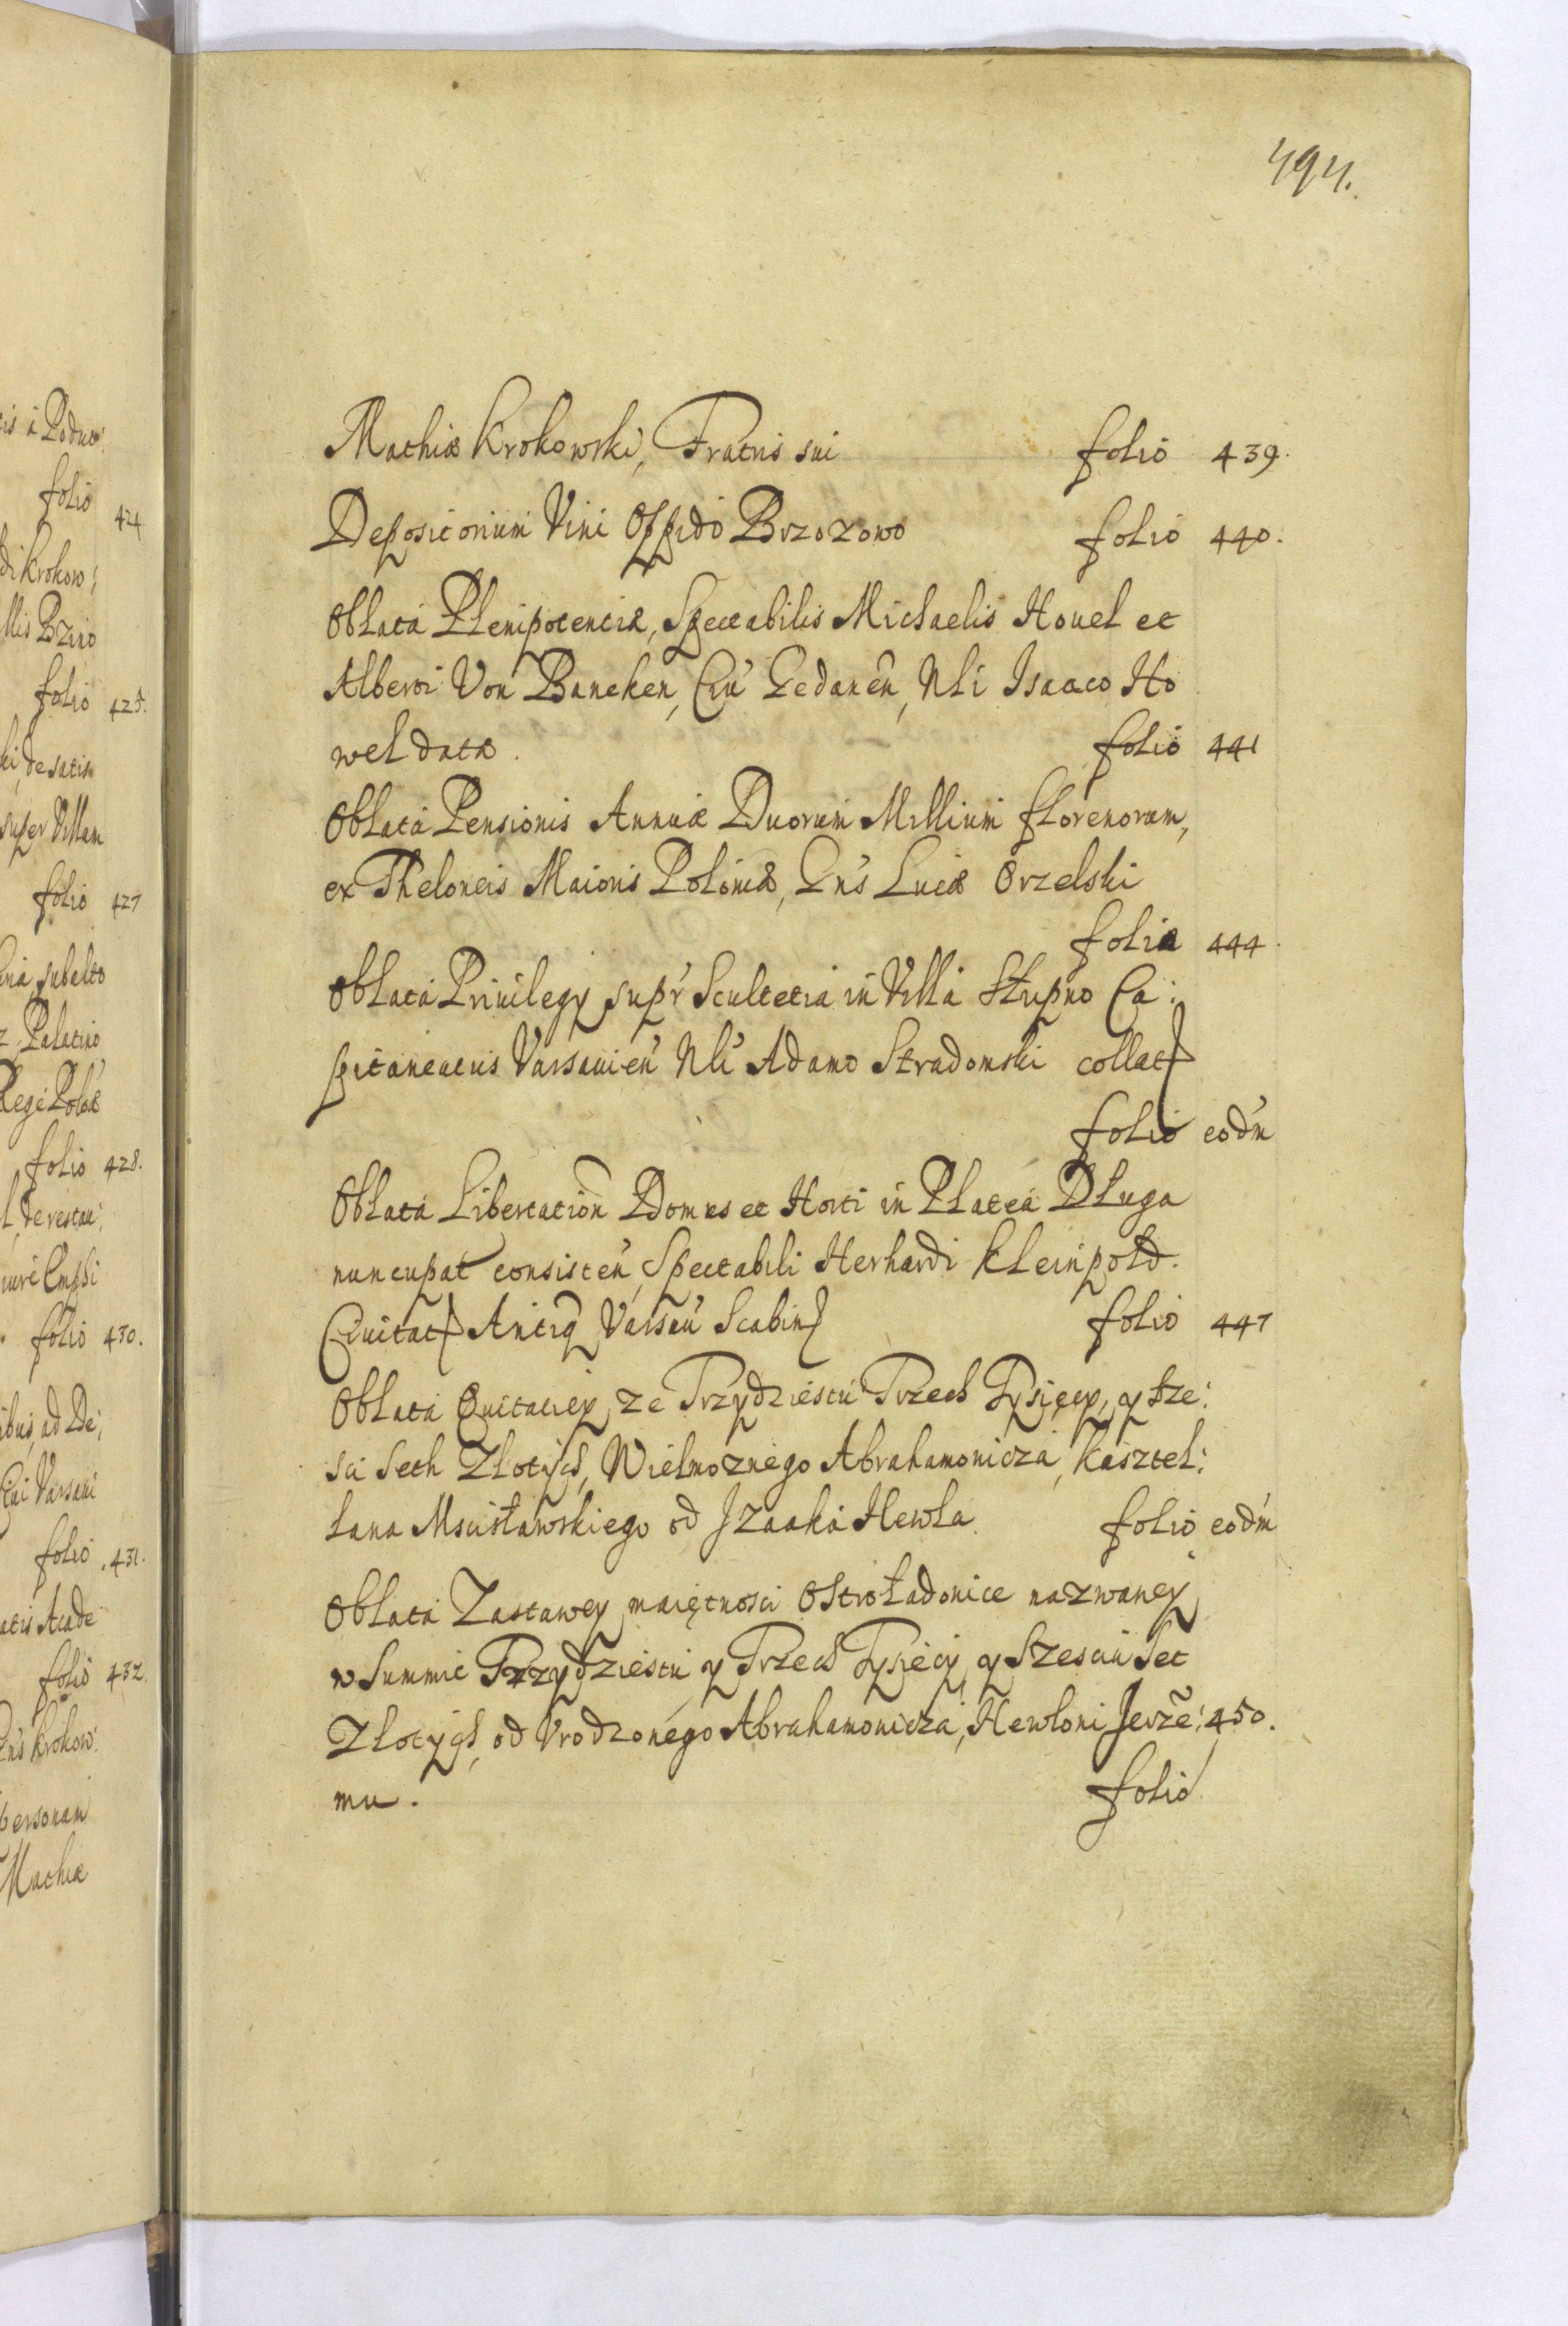 494.
is à Poduo:
folio 424
di Krokow:
llis Bzino
folio 425.
super Villam
folio 427
subalto
Palatino
folio 428.
folio 430.
Varsavi
folio 431.
folio 432.
Krokow:
personam
Mathiæ
Mathiæ Krokowski, Fratris sui folio 439.
Depositorium Vini Oppido Brzozowo folio 440.
Oblata Plenipotentiæ, Spectabilis Michaelis Hovel et
Alberti Von Bancken, Ciu' Gedanen, Nli Isaaco Ho
wel datæ. folio 441
Oblata Pensionis Annuæ Duorum Millium florenorum,
ex Theloneis Maioris Poloniæ, Gn's Lucæ Orzelski
folio 444.
Oblata Privilegy supr' Scultetia in Villa Słupno Ca:
pitaneatus Varsavien' Nli' Adamo Stradomski collat
folio eod'm
Oblata Libertation Domus et Horti in Platea Długa
nuncupat consisten' Spectabili Herhardi Kleinpold.
Civitat Antiq Varsav' Scabin folio 447
Oblata Quitaciey ze Trzydziestu Trzech Tysięcy, y sze:
sci seth Złotych, Wielmoznego Abrahamonicza, Kasztel:
lana Mscisławskiego od Jzaaka Hewla. folio eod'm
Oblata Zastawey maiętnosci Ostroładonice nazwaney
w Summie Trzydziestu y Trzech Tysięcy y Szesciu Set
Złotych, od Vrodzonego Abrahamonicza, Hewloni Jerzẽ: 450.
mu. folio